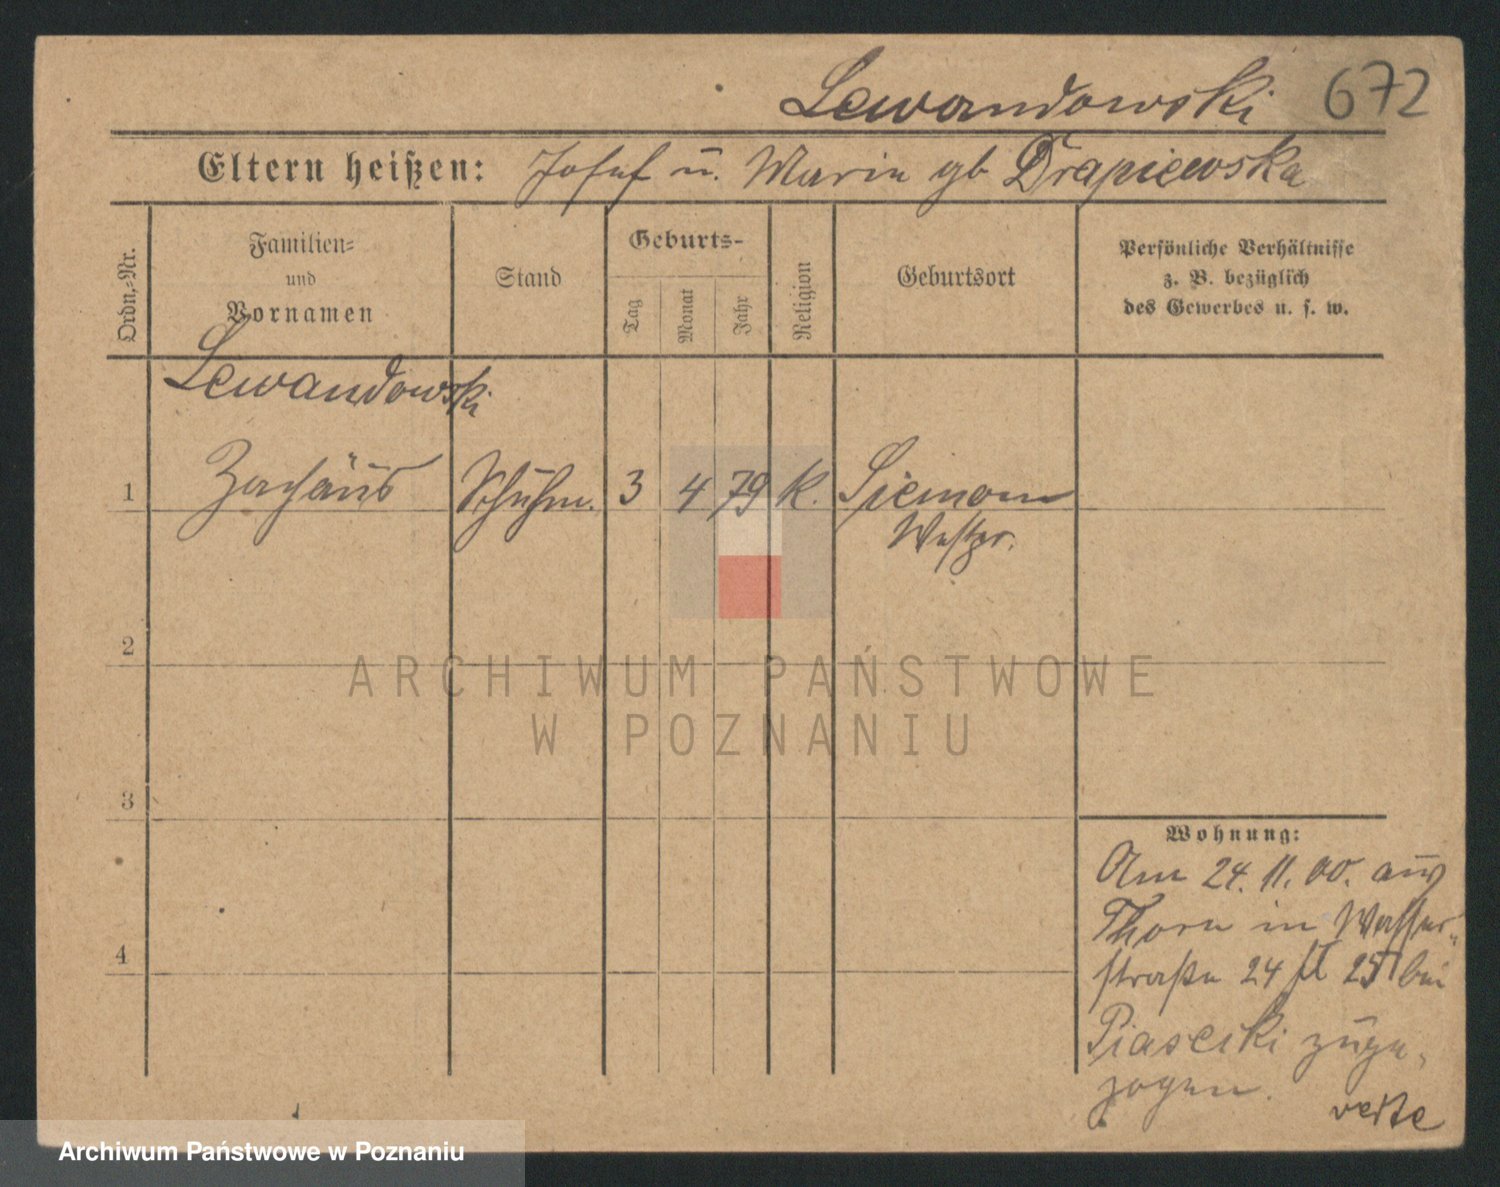 Lewandowski 672
Eltern heißen: Josef u. Maria gb Drapiewska
Ordn.-Nr.
Familien-
und
Vornamen
Stand
Geburts-
Tag
Monat
Jahr
Religion
Geburtsort
Persönliche Verhältnisse
z. B. bezüglich
des Gewerbes u. s. w.
Lewandowski
1 Zachäus Schuhm. 3 4 79 k. Siemon
Westpr.
2
3
4
ARCHIWUM PAŃSTWOWE
W POZNANIU
Wohnung:
Am 24. 11. 00. aus
Thorn in Wasser-
straße 24 25 bei
Piasecki zuge-
zogen.
Archiwum Państwowe w Poznaniu